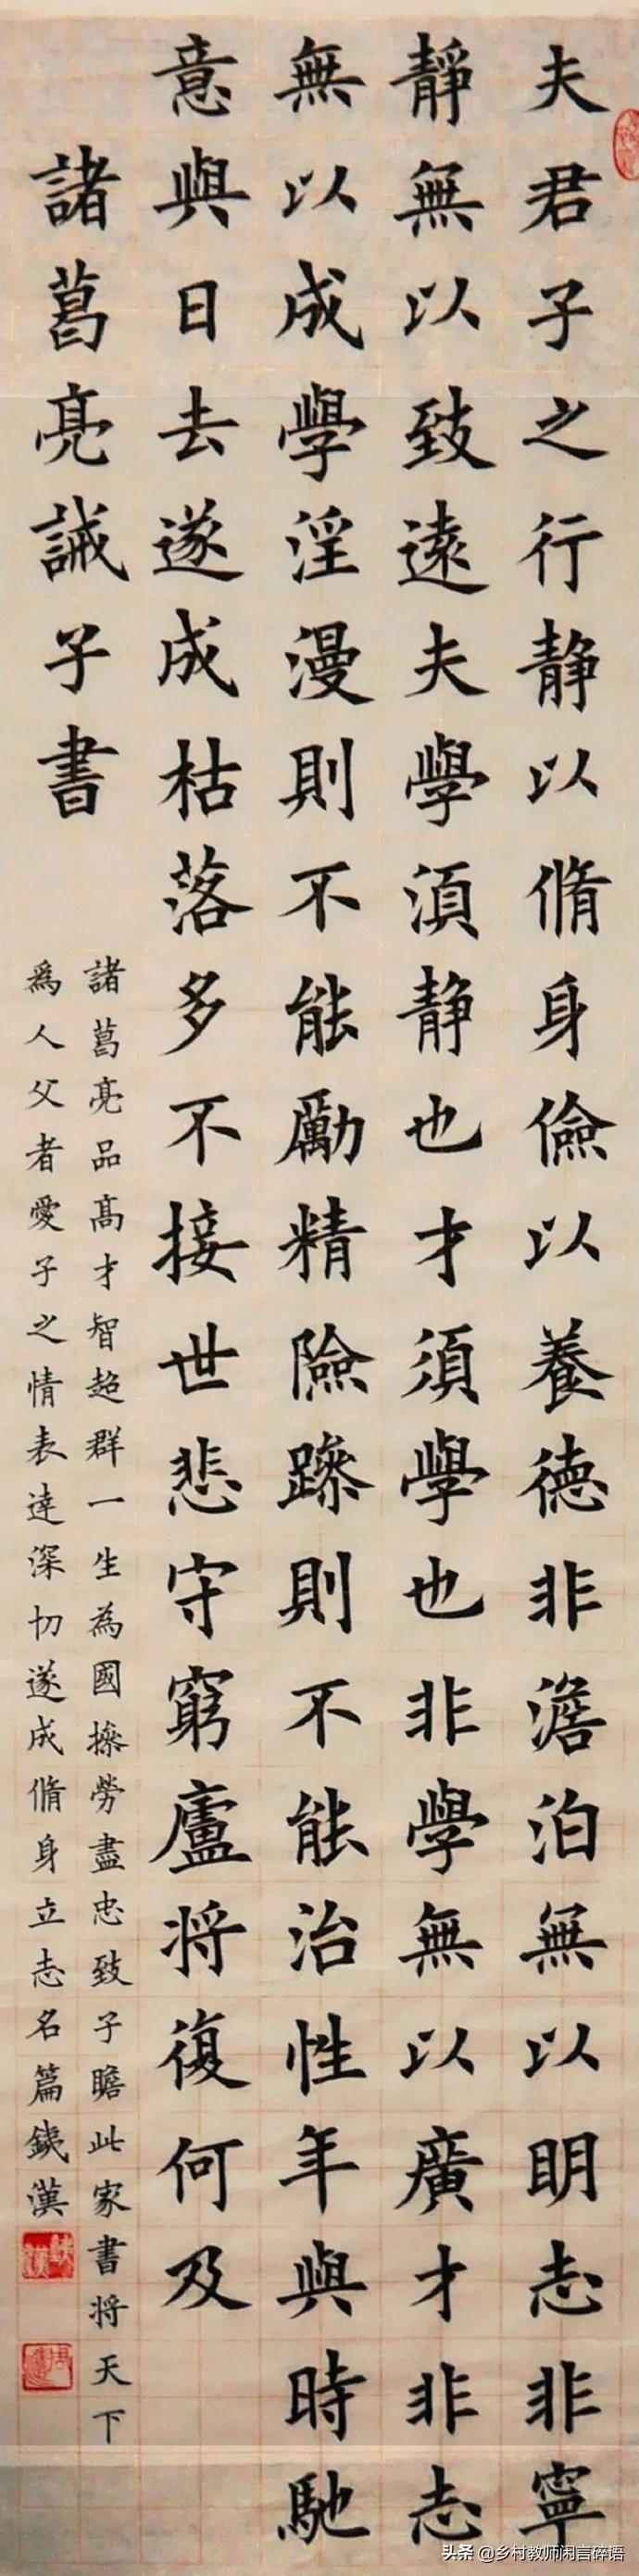 夫君子之行静以脩身儉以養德非澹泊無以明志非寧
靜無以致遠夫學須静也才須學也非學無以廣才非志
無以成學淫漫則不能勵精險躁則不能治性年與時馳
意與日去遂成枯落多不接世悲守窮廬将復何及
諸葛亮誡子書
諸葛亮品高才智超群一生為國操勞盡忠致子瞻此家書将天下
爲人父者愛子之情表達深切遂成脩身立志名篇鐵漢
头条 @乡村教师闲言碎语